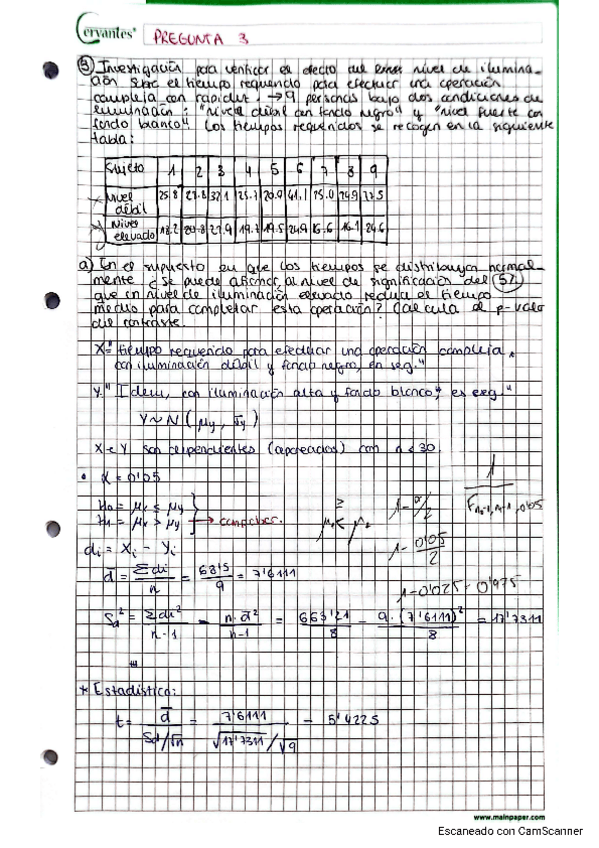 Cervantes®
PREGUNTA 3
③ Investigación para verificar el efecto del nivel de ilumina-
ción sobre el tiempo requerido para efectuar una operación
compleja con rapidez. → 9 personas bajo dos condiciones de
iluminación: "nivel débil con fondo negro" y "nivel fuerte con
fondo blanco". Los tiempos requeridos se recogen en la siguiente
tabla:
Sujeto 1 2 3 4 5 6 7 8 9
x Nivel débil 25.8 41.1 25.0 24.9
y Nivel elevado 18.2 20.8 19.5 24.9 16.6 16.1 24.6
a) En el supuesto en que los tiempos se distribuyan normal-
mente ¿Se puede afirmar, al nivel de significación del 5%
que un nivel de iluminación elevado reduce el tiempo
medio para completar esta operación? Calcula el p-valor
del contraste.
X="tiempo requerido para efectuar una operación compleja,
con iluminación débil y fondo negro, en seg."
Y="Idem, con iluminación alta y fondo blanco, es seg."
Y~N(μy, σy)
X e Y son dependientes (apareados) con n < 30.
• α = 0'05
H₀ = μx ≤ μy
H₁ = μx > μy → comprobar.
≥
μ₁ < μ₂
1-α/2
1-0'05/2
1-0'025=0'975
1/F n-1, n-1, 0'05
di = Xi - Yi
d̄ = Σdi/n = 68'5/9 = 7'6111
Sd² = Σdi²/n-1 - n·d̄²/n-1 = 663'21/8 - 9·(7'6111)²/8 = 17'7311
* Estadístico:
t = d̄/(Sd/√n) = 7'6111/(√17'7311/√9) = 5'4225
www.mainpaper.com
Escaneado con CamScanner